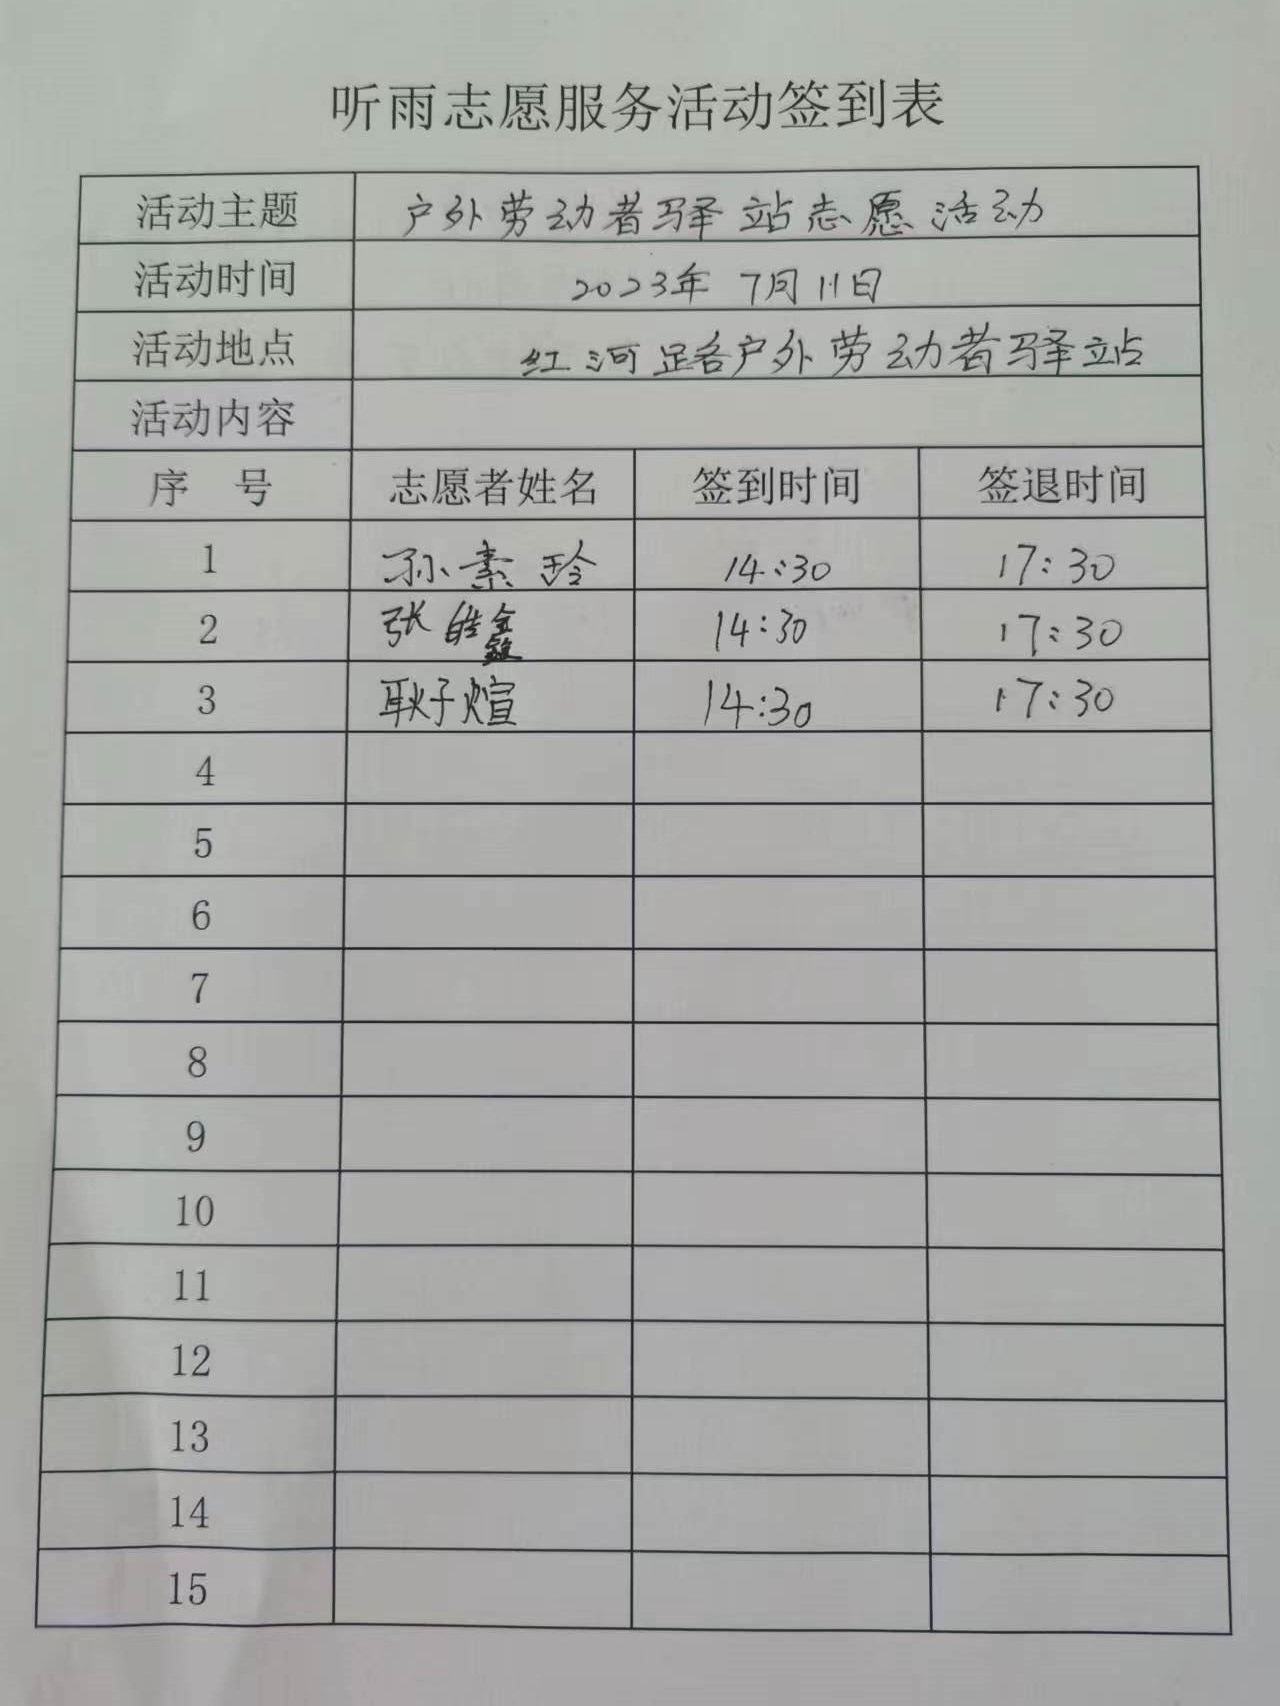 听雨志愿服务活动签到表
活动主题 户外劳动者驿站志愿活动
活动时间 2023年 7月11日
活动地点 红河路户外劳动者驿站
活动内容
序 号 志愿者姓名 签到时间 签退时间
1 孙素玲 14:30 17:30
2 张皓鑫 14:30 17:30
3 耿子煊 14:30 17:30
4
5
6
7
8
9
10
11
12
13
14
15